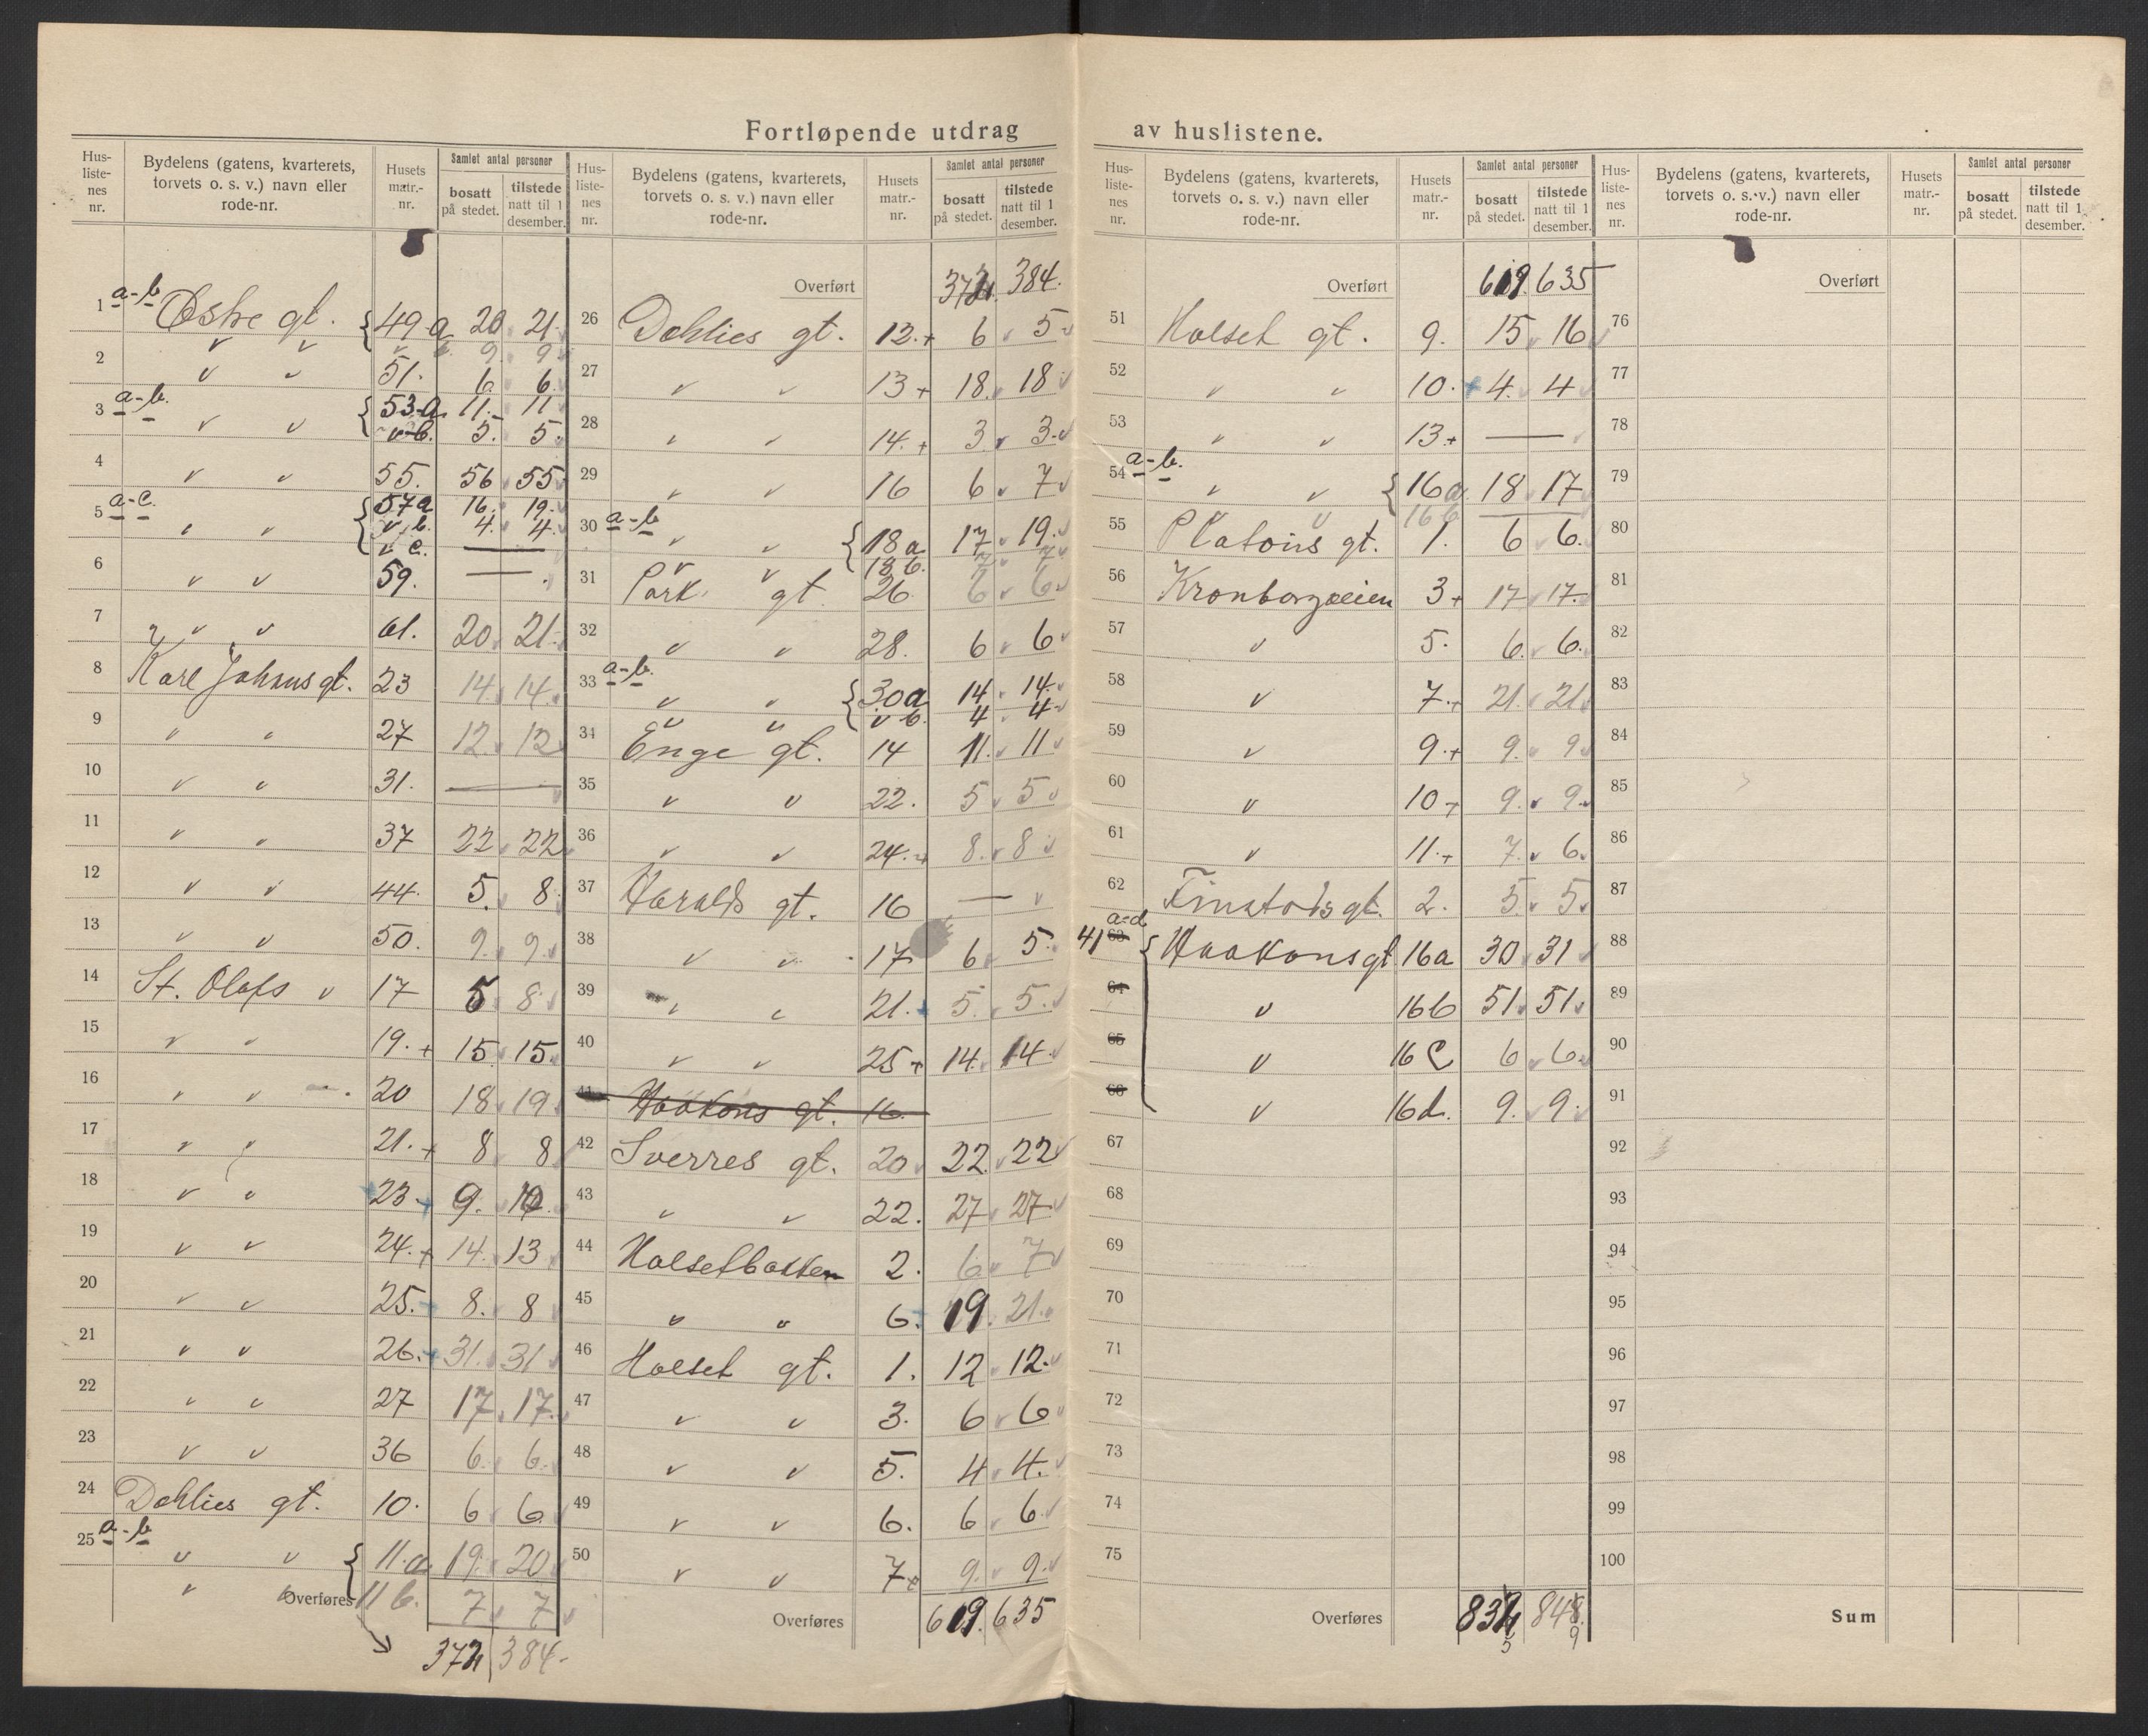 Fortløpende utdrag av huslistene.
Hus-liste-nes nr. | Bydelens (gatens, kvarterets, torvets o. s. v.) navn eller rode-nr. | Husets matr.-nr. | Samlet antal personer | bosatt på stedet. | tilstede natt til 1 desember.
1 a-b Østre gt. 49 a 20 21
v v v b. 9. 9
2 v v 51. 6 6.
3 a-b. v v 53 a 11. 11
v b. 5. 5.
4 v v 55. 56 55
5 a-c. v v 57a 16. 19.
v b. 4. 4.
v c. —
6 v v 59. —
7 v v 61. 20 21
8 Karl Johans gt. 23 14. 14.
9 v v 27 12 12
10 v v 31. —
11 v v 37 22 22
12 v v 44. 5. 8
13 v v 50. 9. 9.
14 St. Olafs v 17 5 8
15 v v 19. + 15 15
16 v v 20 18 19
17 v v 21. + 8 8
18 v v 23 9. 10
19 v v 24. + 14. 13
20 v v 25. 8. 8
21 v v 26. 31. 31
22 v v 27 17 17.
23 v v 36 6. 6.
24 Dahlies gt. 10. 6 6
25 a-b v v 11 a 19. 20
v v Overføres 11 b. 7 7
372 384.
Hus-liste-nes nr. | Bydelens (gatens, kvarterets, torvets o. s. v.) navn eller rode-nr. | Husets matr.-nr. | Samlet antal personer | bosatt på stedet. | tilstede natt til 1 desember.
Overført 384.
26 Dahlies gt. 12. + 6 5
27 v v 13 + 18. 18
28 v v 14. + 3 3
29 v v 16 6 7
30 a-b v v 18 a 17 19.
v v 18 b. 7 7
31 Park gt 26 6 6
32 v v 28. 6 6
33 a-b. v v 30 a 14 14.
v v v b. 4 4
34 Enge gt. 14 11. 11
35 v v 22. 5 5
36 v v 24. + 8. 8
37 Haralds gt. 16 —
38 v v 17 6 5.
39 v v 21. 5. 5.
40 v v 25 + 14. 14
41 Haakons gt. 16.
42 Sverres gt. 20 22 22
43 v v 22. 27 27
44 Holsetbakken 2. 6 7
45 v v 6. 19. 21.
46 Holset gt. 1. 12 12.
47 v v 3. 6 6
48 v v 5. 4 4.
49 v v 6. 6 6
50 v v 7 + 9. 9.
Overføres 619. 635
Hus-liste-nes nr. | Bydelens (gatens, kvarterets, torvets o. s. v.) navn eller rode-nr. | Husets matr.-nr. | Samlet antal personer | bosatt på stedet. | tilstede natt til 1 desember.
Overført 619. 635
51 Holset gt. 9. 15 16
52 v v 10. + 4. 4
53 v v 13 + —
54 a-b. v v 16 a 18 17
v 16 b —
55 Platous gt. 1. 6 6.
56 Kronborgveien 3 + 17 17.
57 v 5. 6. 6.
58 v 7. + 21. 21
59 v 9. + 9. 9
60 v 10 + 9. 9.
61 v 11. + 7. 6.
62 Finstads gt. 2. 5. 5.
41 63 a-d Haakons gt 16a 30 31
64 v 16b 51 51
65 v 16 c 6 6
66 v 16 d. 9. 9.
67
68
69
70
71
72
73
74
75
Overføres 848 5 9
Hus-liste-nes nr. | Bydelens (gatens, kvarterets, torvets o. s. v.) navn eller rode-nr. | Husets matr.-nr. | Samlet antal personer | bosatt på stedet. | tilstede natt til 1 desember.
Overført
76
77
78
79
80
81
82
83
84
85
86
87
88
89
90
91
92
93
94
95
96
97
98
99
100
Sum